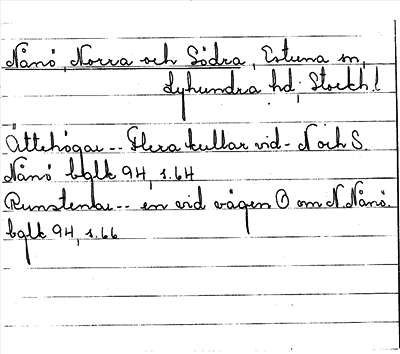 Nånö, Norra och Södra, Estuna sn,
Lyhundra hd; Stockh. l
Ättehögar -- Flera kullar vid - N och S.
Nånö bglk 94, s. 64
Runstenar -- en vid vägen O om N. Nånö.
bglk 94, s. 66